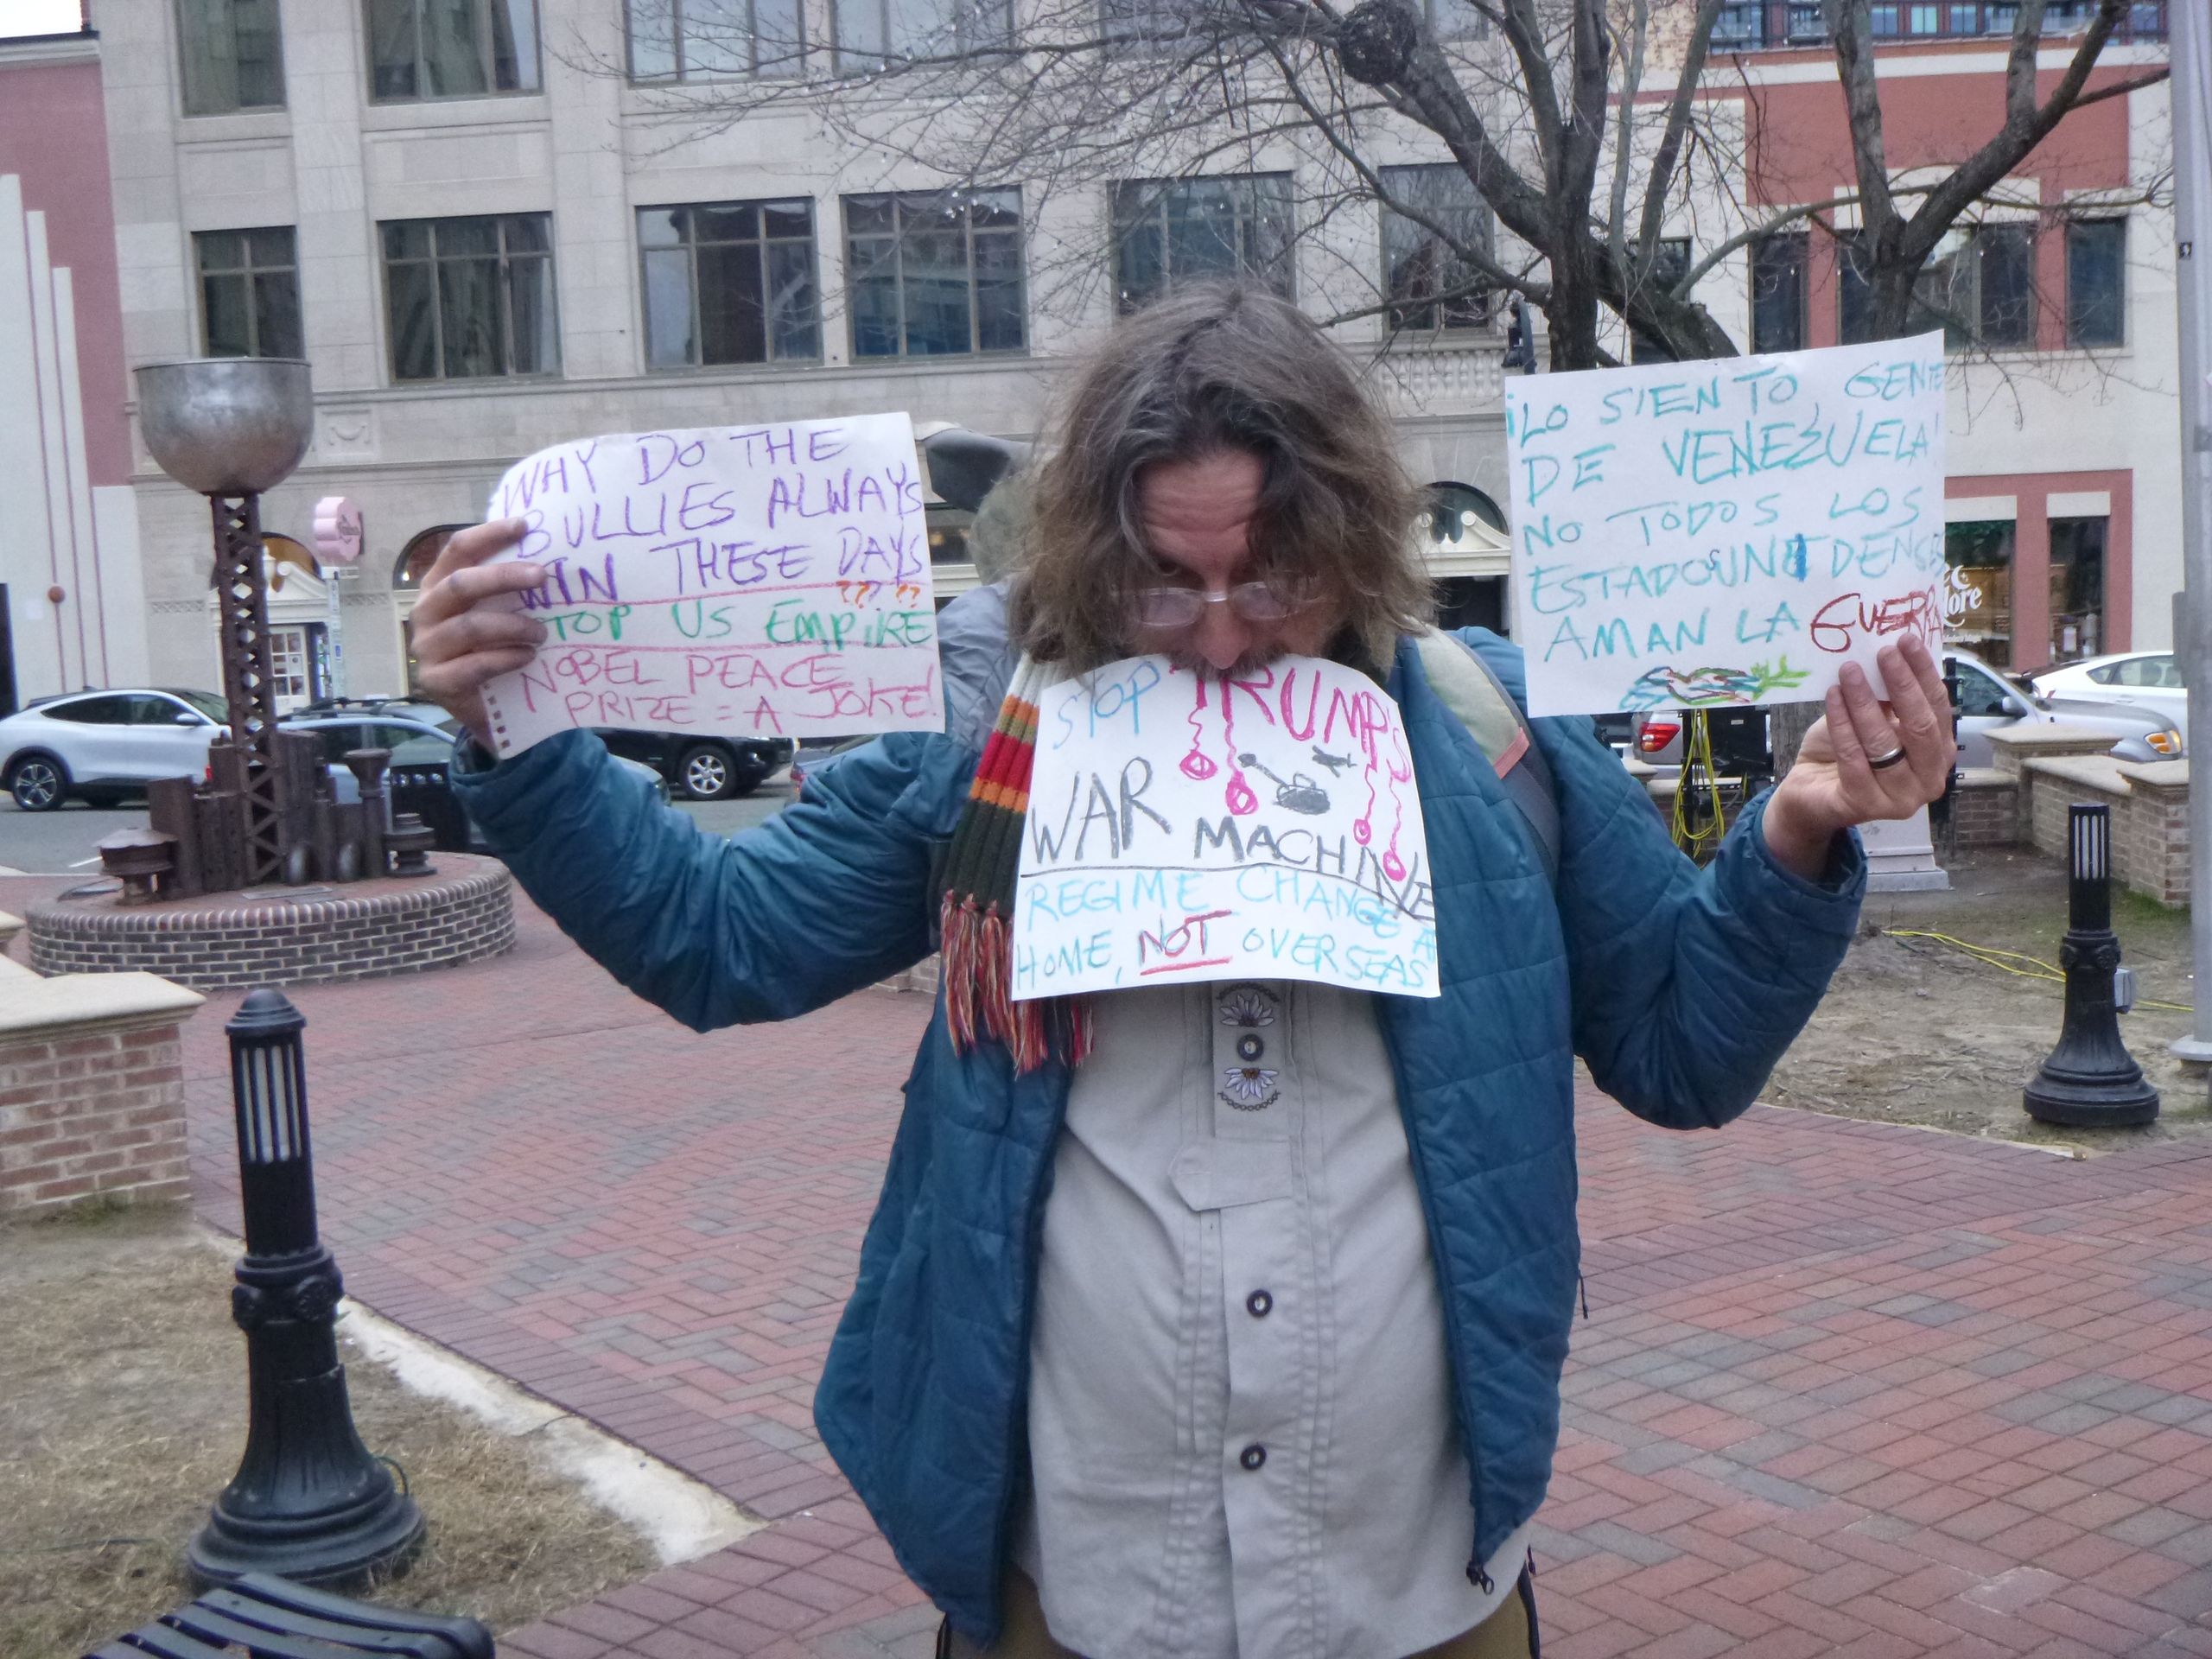 WHY DO THE
BULLIES ALWAYS
WIN THESE DAYS
??? ??
STOP US EMPIRE
NOBEL PEACE
PRIZE = A JOKE!
STOP TRUMP'S
WAR MACHINE
REGIME CHANGE A
HOME, NOT OVERSEAS
¡LO SIENTO, GENTE
DE VENEZUELA!
NO TODOS LOS
ESTADOSUNIDENSES
AMAN LA GUERRA